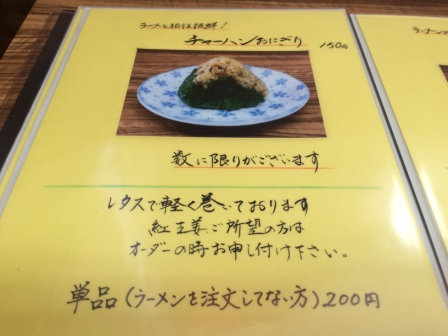 ラーメンと相性抜群!
チャーハンおにぎり 150円
数に限りがございます
レタスで軽く巻いております
紅生姜ご所望の方は
オーダーの時お申し付け下さい。
単品(ラーメンを注文してない方)200円